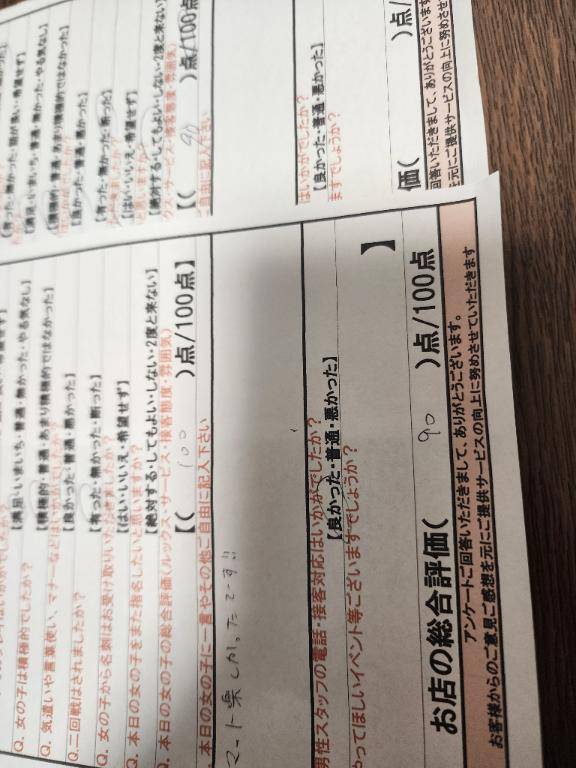 Q. 女の子は積極的でしたか?
【積極的・普通・あまり積極的ではなかった】
Q. 気遣いや言葉使い、マナーなどはいかがでしたか?
【良かった・普通・悪かった】
Q. 二回戦はされましたか?
【有った・無かった・断った】
Q. 女の子から名刺はお受け取りいただきましたか?
【はい・いいえ・希望せず】
Q. 本日の女の子をまた指名したいと思いますか?
【絶対する・してもよい・しない・2度と来ない】
Q. 本日の女の子の総合評価(ルックス・サービス・接客態度・雰囲気)
【( 100 )点/100点】
本日の女の子に一言やその他ご自由に記入下さい
マット楽しかったです!!
男性スタッフの電話・接客対応はいかがでしたか?
【良かった・普通・悪かった】
やってほしいイベント等ございますでしょうか?
】
お店の総合評価( 90 )点/100点
アンケートご回答いただきまして、ありがとうございます。
お客様からのご意見ご感想を元にご提供サービスの向上に努めさせていただきます
【有った・無かった・断った】
【はい・いいえ・希望せず】
【絶対する・してもよい・しない・2度と来ない】
【( 90 )点/100点
ご自由に記入下さい
はいかがでしたか?
【良かった・普通・悪かった】
ますでしょうか?
価( )点/
回答いただきまして、ありがとうございます
を元にご提供サービスの向上に努めさせ